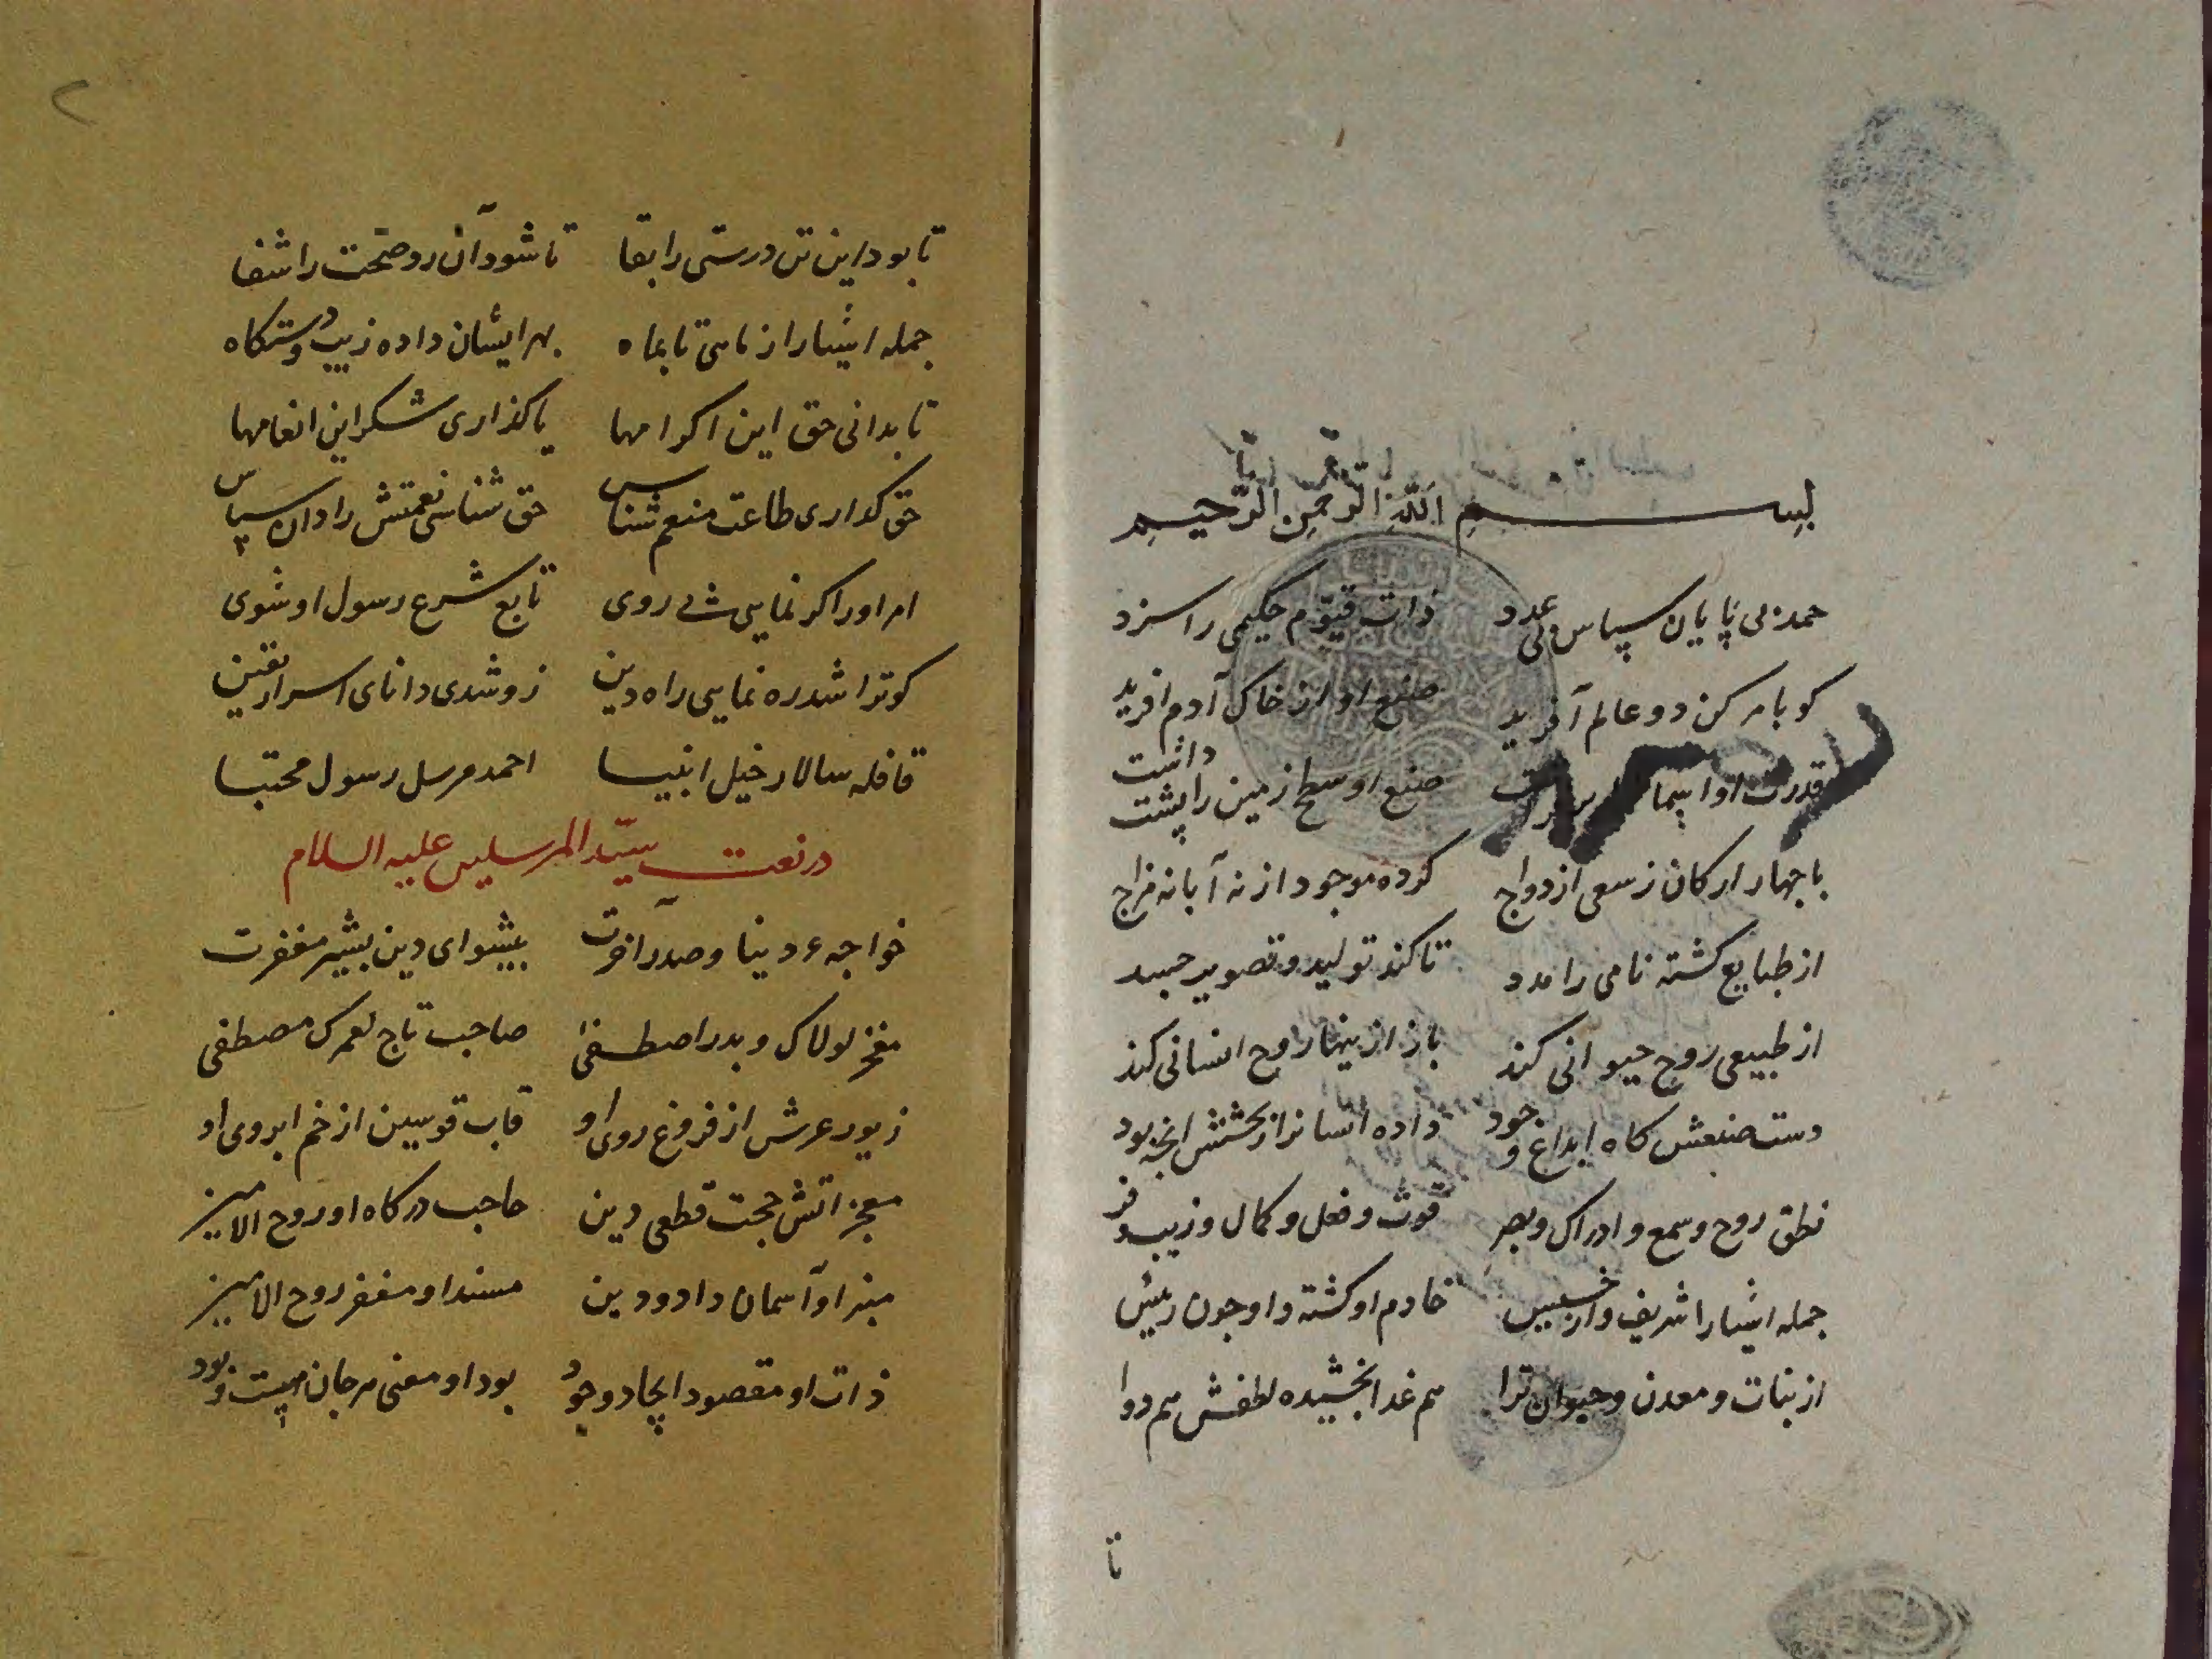 بسم الله الرحمن الرحیم
حمد بی پایان سپاس بی عدد ذات قیّوم حکیمی را سزد
کو بامر کن دو عالم آفرید صنع او از خاک آدم افرید
قدرت او صنع او سطح زمین را پشت داشت
با جهار ارکان ز سعی ازدواج کرده موجود از نه آبا نه مزاج
از طبایع کشته نامی را مدد تا کند تولید و تصویر جسد
از طبیعی روح حیوانی کند باز از ینها روح انسانی کند
دست صنعش کاه ابداع و جود داده انسانرا ز بخشش انچه بود
نطق روح و سمع و ادراک و بصر قوت و فعل و کمال و زیب و فر
جمله اشیا را شریف و ار خسیس خادم او کشته و او جون رئیس
از نبات و معدن و حیوان ترا هم غدا بخشیده لطفش هم دوا
تا
۲
تا بود این تن درستی را بقا تا شود آن رو صحّت را شفا
جمله اشیا را ز ماهی تا بماه بهر ایشان داده زیب و دستکاه
تا بدانی حق این اکرامها یا کذاری شکر این انعامها
حق کذاری طاعت منعم شناس حق شناسی نعمتش را دان سپاس
امر او را کر نمایی پی روی تابع شرع رسول او شوی
کو ترا شد ره نمایی راه دین زو شدی دانای اسرار یقین
قافله سالار خیل انبیا احمد مرسل رسول مجتبا
در نعت سیّد المرسلین علیه السلام
خواجهء دینا و صدر آخرت پیشوای دین بشیر مغفرت
مفخر لولاک و بدر اصطفی صاحب تاج لعمرک مصطفی
زیور عرش از فروغ روی او قاب قوسین از خم ابروی او
معجزاتش حجت قطعی دین حاجب درکاه او روح الامین
منبر او آسمان داد و دین مسند او مغفر روح الامین
ذات او مقصود ایجاد وجود بود او معنی هر جان هست و بود